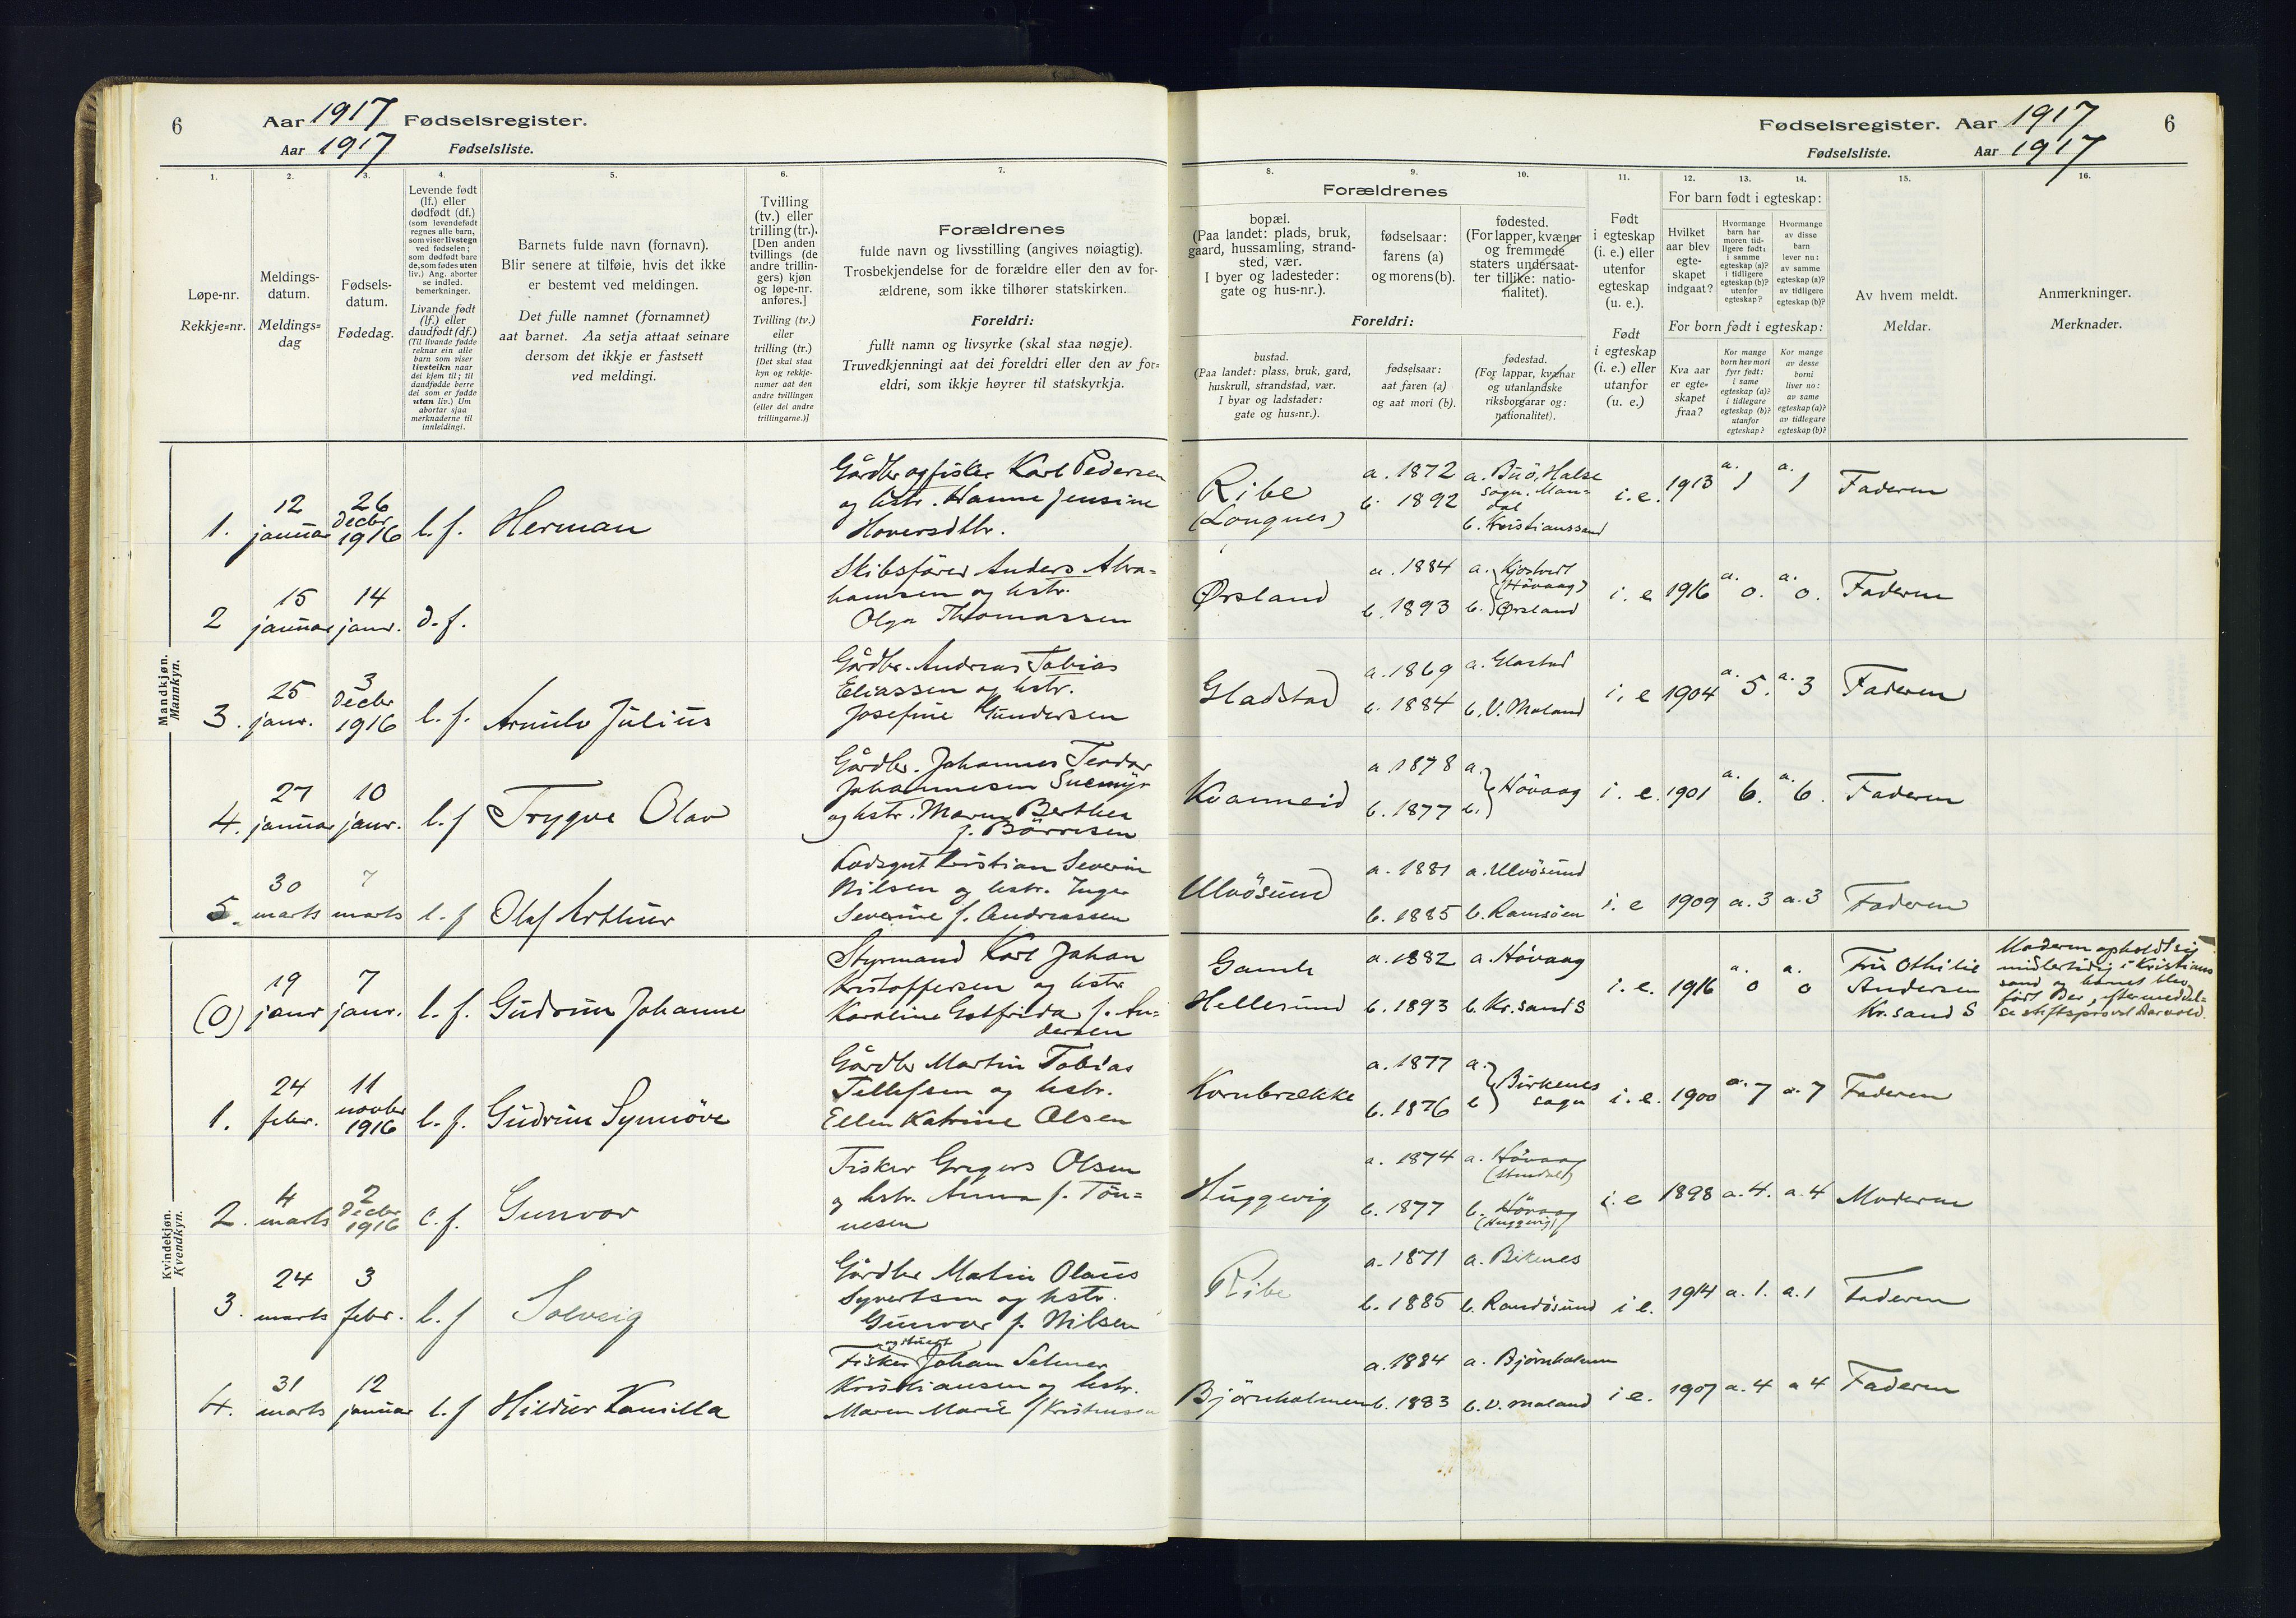 6 Aar 1917 Fødselsregister.
Aar 1917 Fødselsliste.
1.
Løpe-nr.
Rekkje=nr.
2.
Meldings-
datum.
Meldings=
dag
3.
Fødsels-
datum.
Fødedag.
4.
Levende født
(lf.) eller
dødfødt (df.)
(som levendefødt
regnes alle barn,
som viser livstegn
ved fødselen;
som dødfødt bare
de, som fødes uten
liv.) Ang. aborter
se indled.
bemerkninger.
Livande fødd
(lf.) eller
daudfødt (df.)
(Til livande fødde
reknar ein alle
barn som viser
livsteikn naar
dei kjem til; til
daudfødde berre
dei som er fødde
utan liv.) Um
abortar sjaa
merknaderne til
innleidingi.
5.
Barnets fulde navn (fornavn).
Blir senere at tilføie, hvis det ikke
er bestemt ved meldingen.
Det fulle namnet (fornamnet)
aat barnet. Aa setja attaat seinare
dersom det ikkje er fastsett
ved meldingi.
6.
Tvilling
(tv.) eller
trilling (tr.).
[Den anden
tvillings (de
andre trillin-
gers) kjøn
og løpe-nr.
anføres.]
Tvilling (tv.)
eller
trilling (tr.)
[Det skal staa
kyn og rekkje-
numer aat den
andre tvillingen
(eller dei andre
trillingarne.)]
7.
Forældrenes
fulde navn og livsstilling (angives nøiagtig).
Trosbekjendelse for de forældre eller den av for-
ældrene, som ikke tilhører statskirken.
Foreldri:
fullt namn og livsyrke (skal staa nøgje).
Truvedkjenningi aat dei foreldri eller den av for=
eldri, som ikkje høyrer til statskyrkja.
Fødselsregister. Aar 1917 6
Fødselsliste. Aar 1917
Forældrenes
8.
bopæl.
(Paa landet: plads, bruk,
gaard, hussamling, strand-
sted, vær.
I byer og ladesteder:
gate og hus-nr.).
9.
fødselsaar:
farens (a)
og morens (b).
10.
fødested.
(For lapper, kvæner
og fremmede
staters undersaat-
ter tillike: natio-
nalitet).
Foreldri:
bustad.
(Paa landet: plass, bruk, gard,
huskrull, strandstad, vær.
I byar og ladstader:
gate og hus=nr.).
fødselsaar:
aat faren (a)
og aat mori (b).
fødestad.
(For lappar, kvænar
og utanlandske
riksborgarar og:
nationalitet).
11.
Født
i egteskap
(i. e.) eller
utenfor
egteskap
(u. e.).
Født
i egteskap
(i. e.) eller
utanfor
(u. e.)
For barn født i egteskap:
12.
Hvilket
aar blev
egte-
skapet
indgaat?
13.
Hvormange
barn har
moren tid-
ligere født:
i samme
egteskap (a)?
i tidligere
egteskap (b)?
utenfor
egteskap?
14.
Hvormange
av disse
barn
lever nu:
av samme
egteskap (a)?
av tidligere
egteskap (b)?
For born født i egteskap:
Kva aar
er egte=
skapet
fraa?
Kor mange
born hev mori
fyrr født:
i same
egteskap (a)?
i tidlegare
egteskap (b)?
utanfor
egteskap?
Kor mange
av desse
borni
liver no:
av same
egteskap (a)?
av tidlegare
egteskap (b)?
15.
Av hvem meldt.
Meldar.
16.
Anmerkninger.
Merknader.
Mandkjøn.
Mannkyn.
1. 12 januar 26 decbr 1916 l. f. Herman
Gårdbr og fisker Karl Pedersen
og hstr. Hanne Jensine
Hoversdtbr.
Ribe a. 1872 b. 1892 a. Buö, Halse
sogn. Man=
dal
b. Kristianssand i. e. 1913 a. 1 a. 1 Faderen
2 15 januar 14 janr. d. f.
Skibsfører Anders Abra=
hamsen og hstr.
Olga Thomassen
Ørsland a. 1884 b. 1893 a. Kjöstvedt
(Hövaag)
b. Ørsland i. e 1916 a. 0. a. 0. Faderen
3. 25 janr. 3 decbr 1916 l. f. Arnulv Julius
Gårdbr. Andreas Tobias
Eliassen og hstr.
Josefine Gundersen
Gladstad a. 1869 b. 1884 a. Glastad
b. V. Moland i. e 1904 a. 5. a. 3 Faderen
4. 27 januar 10 janr. l. f Trygve Olav
Gårdbr. Johannes Teodor
Johannesen Suemyr
og hstr. Maren Berthea
f. Börresen
Kvanneid a. 1878 b. 1877 a. b. Hövaag i. e. 1901 a. 6. a. 6. Faderen
5. 30 marts 7 marts l. f Olaf Arthur
Lodsgut Kristian Severin
Nilsen og hstr. Inger
Severine f. Andreassen
Ulvösund a. 1881 b. 1885 a. Ulvösund
b. Ramsöen i. e 1909 a. 3 a. 3 Faderen
Kvindekjøn.
Kvendkyn.
(0) 19 janr 7 janr. l. f. Gudrun Johanne
Styrmand Karl Johan
Kristoffersen og hstr
Karoline Gotfrida f. An=
dersen
Gamle
Hellesund a. 1882 b. 1893 a. Hövaag
b. Kr.sand S i. e. 1916 a. 0 a. 0
Fru Othilie
Andersen
Kr. sand S
Moderen opholdt sig
midlertidig i Kristians
sand og barnet blev
født der, efter meddel=
se stiftsprovst Aarvold.
1. 24 febr. 11 novbr 1916 l. f. Gudrun Synnöve
Gårdbr Martin Tobias
Tellefsen og hstr.
Ellen Katrine Olsen
Kornbrække a. 1877 b. 1876 a. b Birkenes
sogn i. e. 1900 a. 7 a. 7 Faderen
2. 4 marts 2 decbr 1916 l. f. Gunvor
Fisker Gregers Olsen
og hstr. Anna f. Tön=
nesen
Huggevig a. 1874 b. 1877 a. Hövaag
b. Hövaag
(Huggevig) i. e 1898 a. 4. a. 4 Moderen
3. 24 marts 3 febr. l. f Solveig
Gårdbr Martin Olaus
Syvertsen og hstr.
Gunvor f. Nilsen
Ribe a. 1871 b. 1885 a. Birkenes
b. Randösund i e. 1914 a. 1. a. 1 Faderen
4. 31 marts 12 januar l. f Hildur Kamilla
Fisker Johan Selmer
Kristiansen og hstr.
Maren Marie f Kristensen
Björnholmen a. 1884 b. 1883 a. Björnholmen
b. V. Moland i e. 1907 a. 4 a 4 Faderen